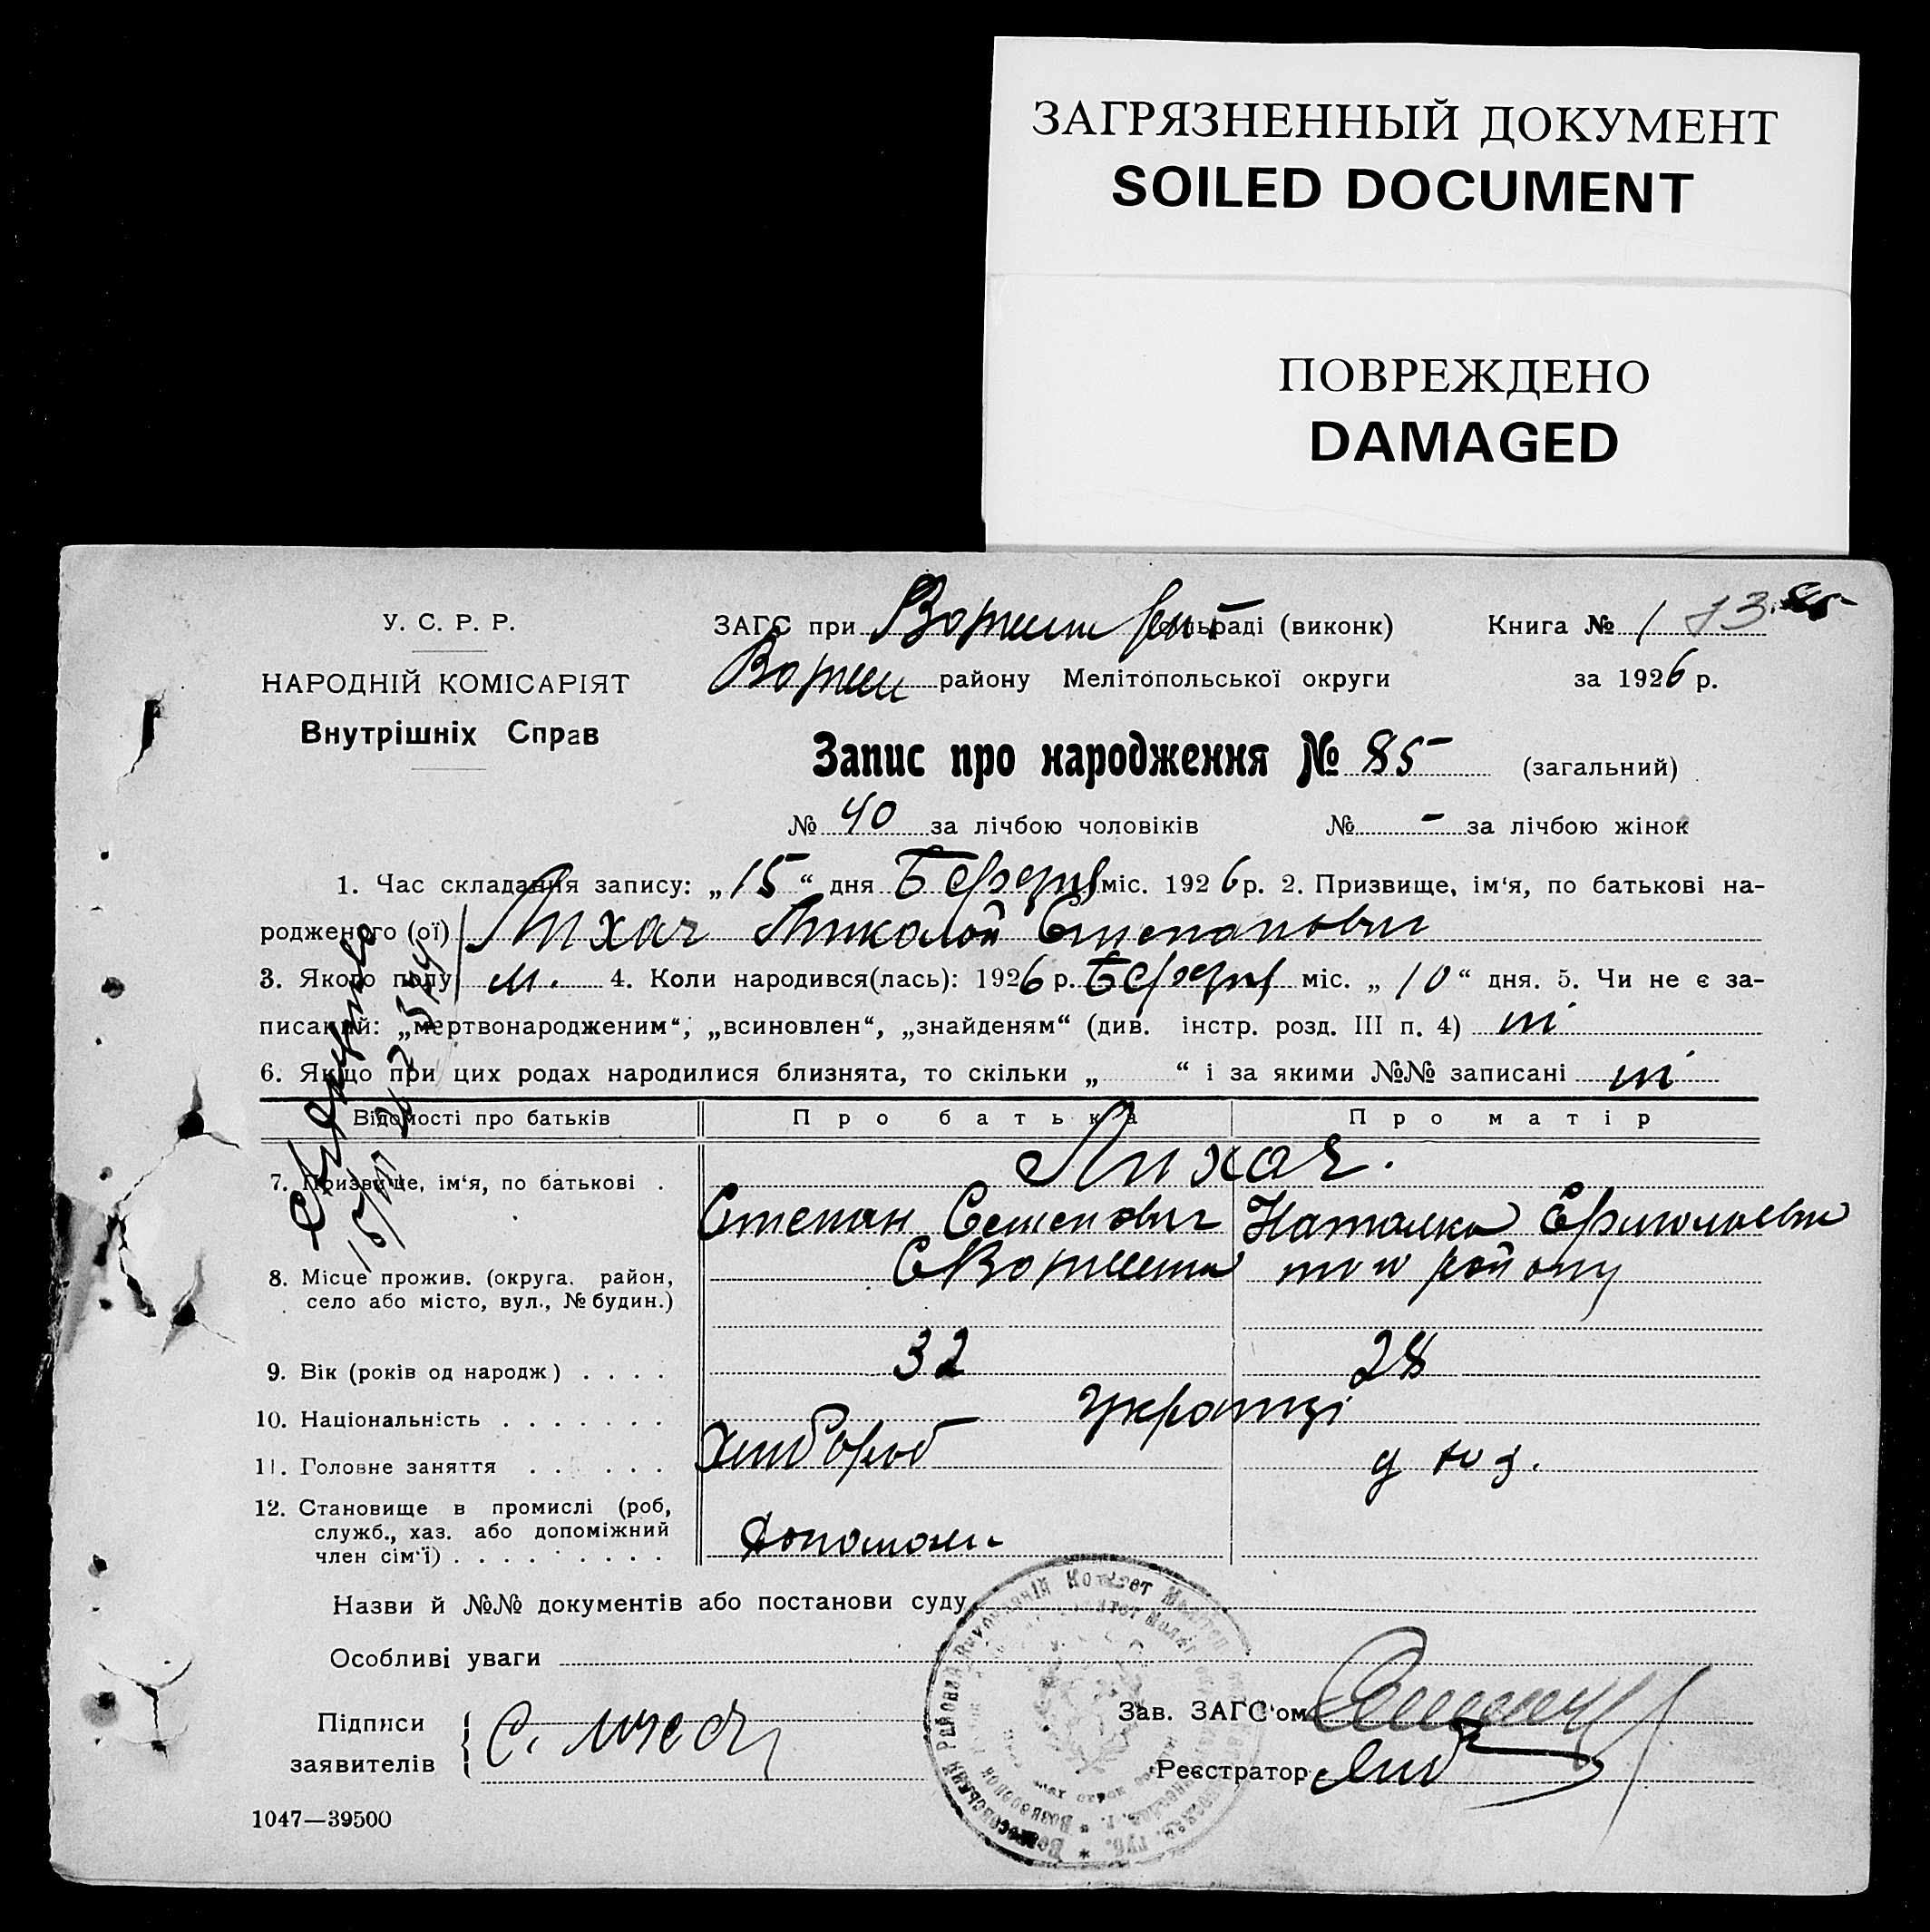 ЗАГРЯЗНЕННЫЙ ДОКУМЕНТ
SOILED DOCUMENT
ПОВРЕЖДЕНО
DAMAGED
У. С. Р. Р.
НАРОДНІЙ КОМІСАРІЯТ
Внутрішніх Справ
ЗАГС при сільраді (виконк) Книга № 1 13
району Мелітопольської округи за 1926 р.
Запис про народження № 85 (загальний)
№ 40 за лічбою чоловіків № - за лічбою жінок
1. Час складання запису: „15“ дня Березня міс. 1926 р. 2. Призвище, ім'я, по батькові на-
родженого (ої) Лихач Миколай Степанович
3. Якого полу м. 4. Коли народився(лась): 1926 р. Березня міс. „10“ дня. 5. Чи не є за-
писаний: „мертвонародженим“, „всиновлен“, „знайденям“ (див. інстр. розд. III п. 4) ні
6. Якщо при цих родах народилися близнята, то скільки „ “ і за якими №№ записані ні
Відомості про батьків Про батька Про матір
Лихач.
7. Призвище, ім'я, по батькові .
Степан Семенович Наталка
8. Місце прожив. (округа. район,
село або місто, вул., № будин.)
району
9. Вік (років од народж) . . . . 32 28
10. Національність . . . . . . . Українці
11. Головне заняття . . . . . . Хлібороб
12. Становище в промислі (роб,
служб., хаз. або допоміжний
член сім'ї) . . . . . . . . .
Назви й №№ документів або постанови суду
Особливі уваги
Підписи
заявителів
Зав. ЗАГС'ом
Реєстратор
1047—39500